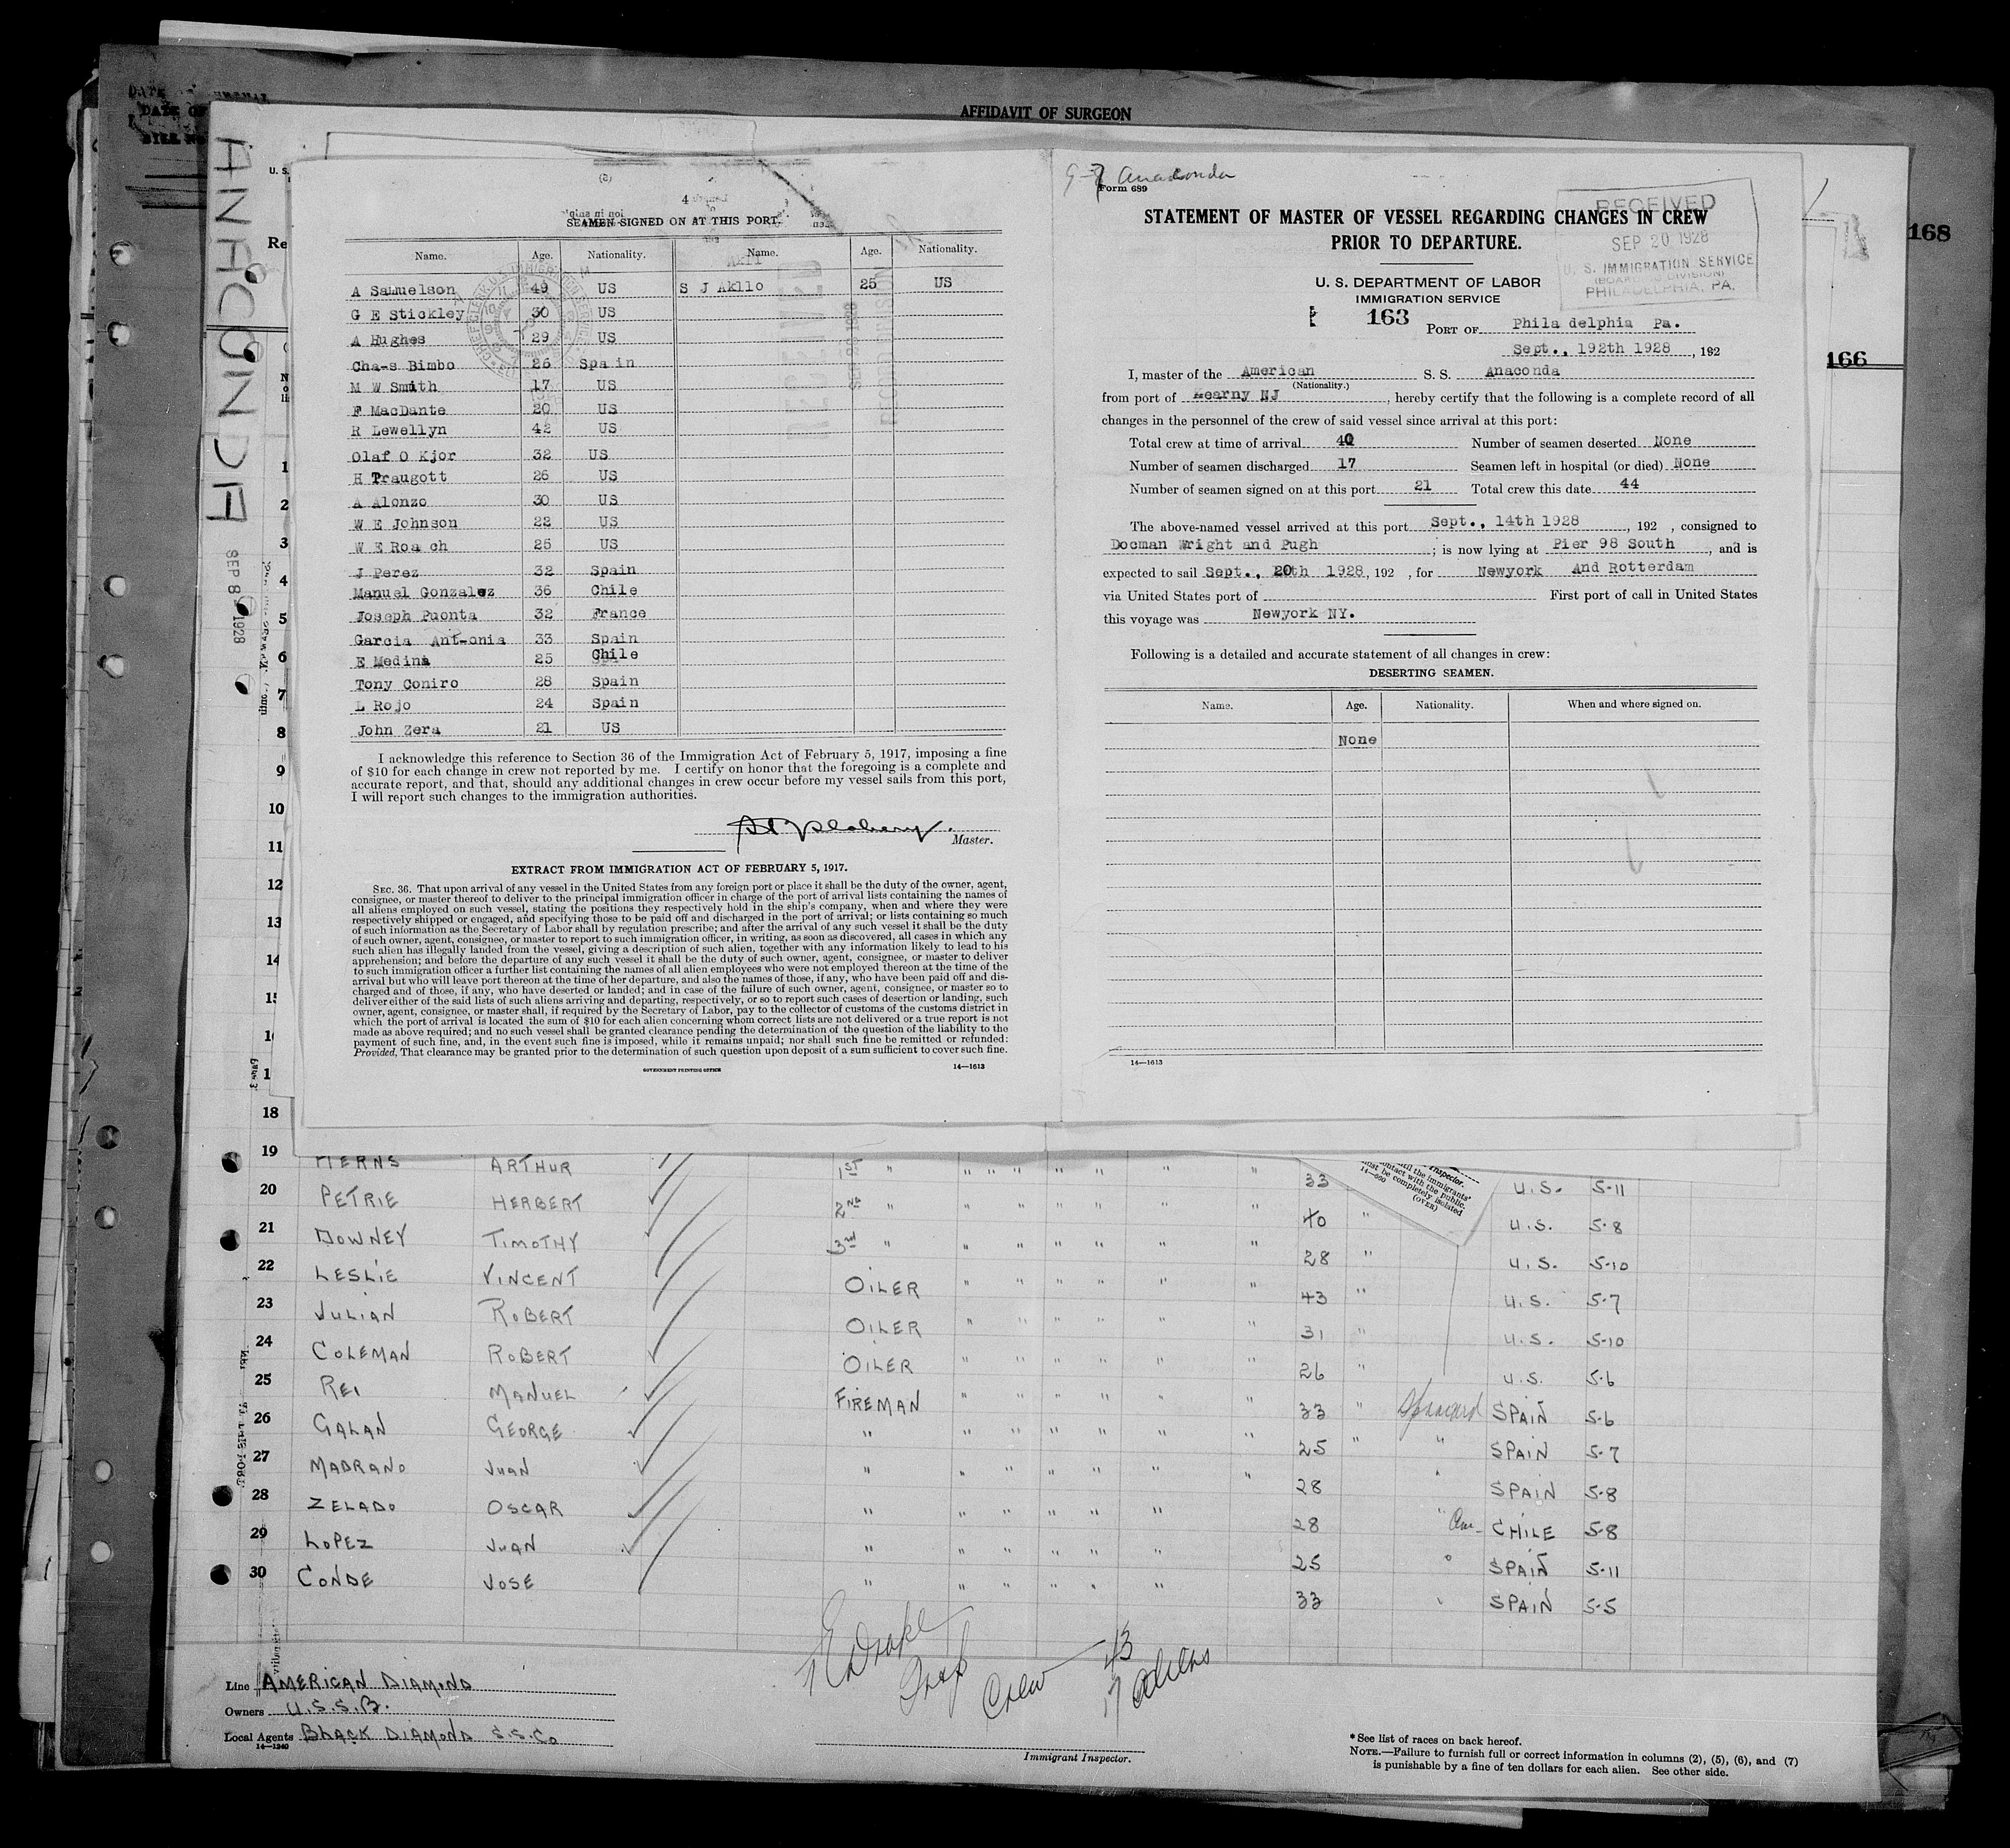 AFFIDAVIT OF SURGEON
ANACONDA
SEP 8 1928
168
166
4
SEAMEN SIGNED ON AT THIS PORT.
Name. Age. Nationality. Name. Age. Nationality.
A Samuelson 49 US S J Akllo 25 US
G E Stickley 30 US
A Hughes 29 US
Cha-s Bimbo 26 Spain
M W Smith 17 US
F MacDante 20 US
R Lewellyn 42 US
Olaf O Kjor 32 US
H Traugott 26 US
A Alonzo 30 US
W E Johnson 22 US
W E Roach 25 US
J Perez 32 Spain
Manuel Gonzalez 36 Chile
Joseph Puonta 32 France
Garcia Ant-onia 33 Spain
E Medina 25 Chile
Tony Coniro 28 Spain
L Rojo 24 Spain
John Zera 21 US
I acknowledge this reference to Section 36 of the Immigration Act of February 5, 1917, imposing a fine
of $10 for each change in crew not reported by me. I certify on honor that the foregoing is a complete and
accurate report, and that, should any additional changes in crew occur before my vessel sails from this port,
I will report such changes to the immigration authorities.
Master.
EXTRACT FROM IMMIGRATION ACT OF FEBRUARY 5, 1917.
SEC. 36. That upon arrival of any vessel in the United States from any foreign port or place it shall be the duty of the owner, agent,
consignee, or master thereof to deliver to the principal immigration officer in charge of the port of arrival lists containing the names of
all aliens employed on such vessel, stating the positions they respectively hold in the ship's company, when and where they were
respectively shipped or engaged, and specifying those to be paid off and discharged in the port of arrival; or lists containing so much
of such information as the Secretary of Labor shall by regulation prescribe; and after the arrival of any such vessel it shall be the duty
of such owner, agent, consignee, or master to report to such immigration officer, in writing, as soon as discovered, all cases in which any
such alien has illegally landed from the vessel, giving a description of such alien, together with any information likely to lead to his
apprehension; and before the departure of any such vessel it shall be the duty of such owner, agent, consignee, or master to deliver
to such immigration officer a further list containing the names of all alien employees who were not employed thereon at the time of the
arrival but who will leave port thereon at the time of her departure, and also the names of those, if any, who have been paid off and dis-
charged and of those, if any, who have deserted or landed; and in case of the failure of such owner, agent, consignee, or master so to
deliver either of the said lists of such aliens arriving and departing, respectively, or so to report such cases of desertion or landing, such
owner, agent, consignee, or master shall, if required by the Secretary of Labor, pay to the collector of customs of the customs district in
which the port of arrival is located the sum of $10 for each alien concerning whom correct lists are not delivered or a true report is not
made as above required; and no such vessel shall be granted clearance pending the determination of the question of the liability to the
payment of such fine, and, in the event such fine is imposed, while it remains unpaid; nor shall such fine be remitted or refunded:
Provided, That clearance may be granted prior to the determination of such question upon deposit of a sum sufficient to cover such fine.
GOVERNMENT PRINTING OFFICE 14—1613
Anaconda
Form 689
STATEMENT OF MASTER OF VESSEL REGARDING CHANGES IN CREW
PRIOR TO DEPARTURE.
RECEIVED
SEP 20 1928
U. S. IMMIGRATION SERVICE
PHILADELPHIA, PA.
U. S. DEPARTMENT OF LABOR
IMMIGRATION SERVICE
163 PORT OF Phila delphia Pa.
Sept., 192th 1928, 192
I, master of the American S. S. Anaconda
(Nationality.)
from port of Kearny NJ, hereby certify that the following is a complete record of all
changes in the personnel of the crew of said vessel since arrival at this port:
Total crew at time of arrival 40 Number of seamen deserted None
Number of seamen discharged 17 Seamen left in hospital (or died) None
Number of seamen signed on at this port 21 Total crew this date 44
The above-named vessel arrived at this port Sept., 14th 1928, 192 , consigned to
Docman Wright and Pugh; is now lying at Pier 98 South, and is
expected to sail Sept., 20th 1928, 192 , for Newyork And Rotterdam
via United States port of First port of call in United States
this voyage was Newyork NY.
Following is a detailed and accurate statement of all changes in crew:
DESERTING SEAMEN.
Name. Age. Nationality. When and where signed on.
None
14—1613
1
2
3
4
5
6
7
8
9
10
11
12
13
14
18
19 HERNS ARTHUR 1ST " " " " " " " " 33 U.S. 5-11
20 PETRIE HERBERT 2ND " " " " " " " 40 " U.S. 5-8
21 DOWNEY TIMOTHY 3rd " " " " " " " 28 " U.S. 5-10
22 LESLIE VINCENT OILER " " " " " " 43 " U.S. 5-7
23 JULIAN ROBERT OILER " " " " " " 31 " U.S. 5-10
24 COLEMAN ROBERT OILER " " " " " " 26 " U.S. 5-6
25 REI MANUEL FIREMAN " " " " " " 33 " Spaniard SPAIN 5-6
26 GALAN GEORGE " " " " " " " 25 " " SPAIN 5-7
27 MADRANO JUAN " " " " " " " 28 " SPAIN 5-8
28 ZELADO OSCAR " " " " " " 28 " Am- CHILE 5-8
29 LOPEZ JUAN " " " " " " 25 " SPAIN 5-11
30 CONDE JOSE " " " " " " 33 " SPAIN 5-5
Inspector.
until the immigrants'
contact with the public.
must be completely isolated
14—690 (OVER)
Drake
Insp
Crew — 43
17 aliens
Line AMERICAN DIAMOND
Owners U.S.S.B.
Local Agents BLACK DIAMOND S.S.Co
14—1240
Immigrant Inspector.
*See list of races on back hereof.
NOTE.—Failure to furnish full or correct information in columns (2), (5), (6), and (7)
is punishable by a fine of ten dollars for each alien. See other side.